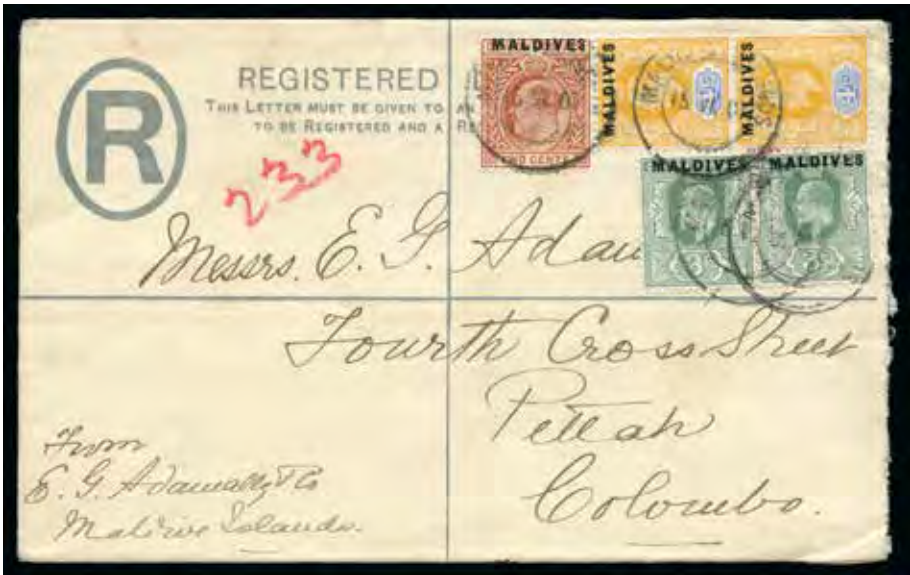 R
REGISTERED
THIS LETTER MUST BE GIVEN TO AN
TO BE REGISTERED AND A RE
233
MALDIVES
TWO CENTS
MALDIVES
MALDIVES
MALDIVES
MALDIVES
Messrs. E. G. Adam
Fourth Cross Street
Pettah
Colombo.
From
E. G. Adamally & Co
Maldive Islands.